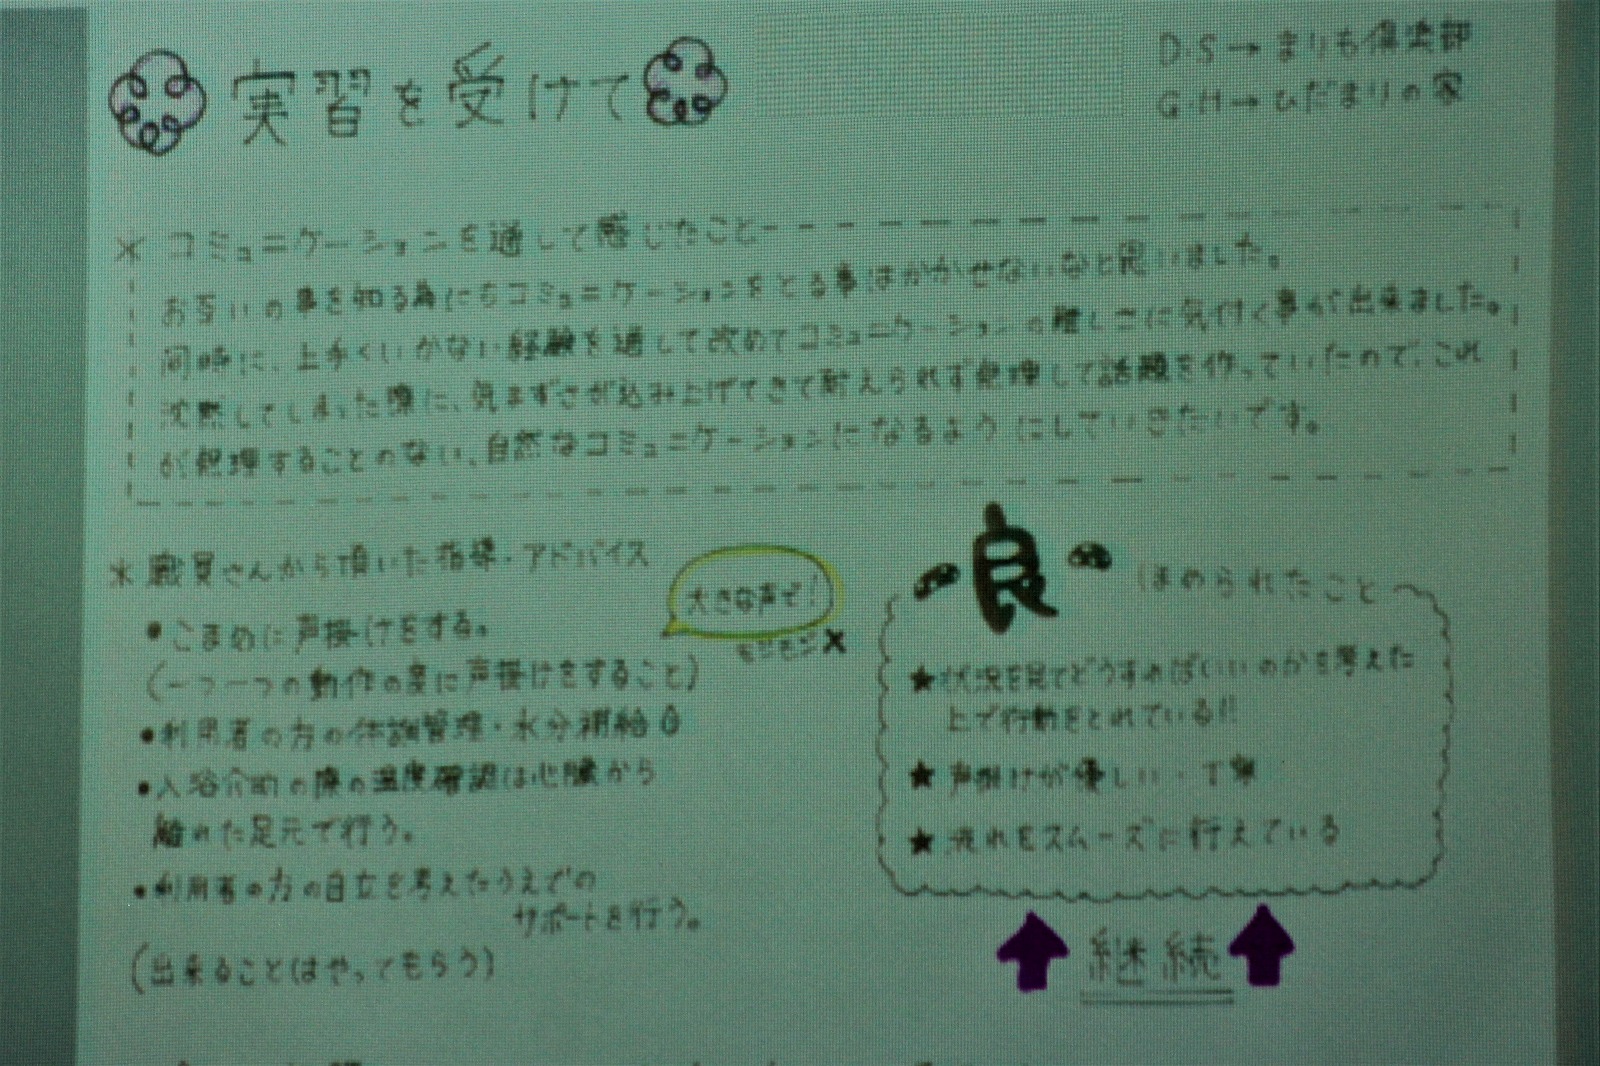 実習を受けて
D・S→まりも倶楽部
G・H→ひだまりの家
＊コミュニケーションを通して感じたこと
お互いの事を知る為にもコミュニケーションをとる事はかかせないなと思いました。
同時に、上手くいかない経験を通して改めてコミュニケーションの難しさに気付く事が出来ました。
沈黙してしまった際に、気まずさが込み上げてきて耐えられず無理して話題を作っていたので、これ
が無理することのない、自然なコミュニケーションになるようにしていきたいです。
＊職員さんから頂いた指導・アドバイス
・こまめに声掛けをする。
大きな声で！
モジモジ×
(一つ一つの動作の度に声掛けをすること)
・利用者の方の体調管理・水分補給
・入浴介助の際の温度確認は心臓から
離れた足元で行う。
・利用者の方の自立を考えたうえでの
サポートを行う。
(出来ることはやってもらう)
良
ほめられたこと
★状況を見てどうすればいいのかを考えた
上で行動をとれている!!
★声掛けが優しい・丁寧
★流れをスムーズに行えている
継続